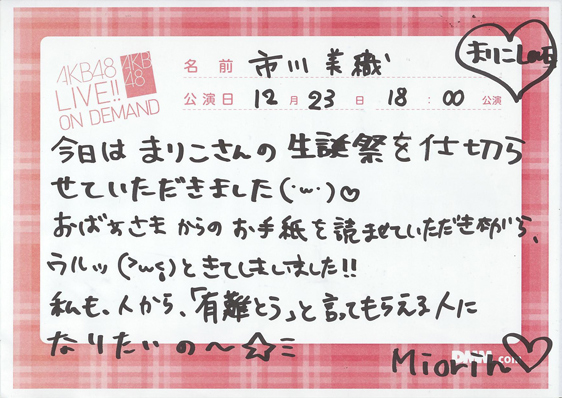 AKB48
LIVE!!
ON DEMAND
AKB
48
名前 市川美織
まりこLove
公演日 12月23日 18:00 公演
今日はまりこさんの生誕祭を仕切ら
せていただきました(·ω·)♡
おばあさまからのお手紙を読ませていただきながら、
ウルッ(>ω<)ときてしましました!!
私も、人から、「有難とう」と言ってもらえる人に
なりたいの〜☆ミ
Miorin♡
DMM.com